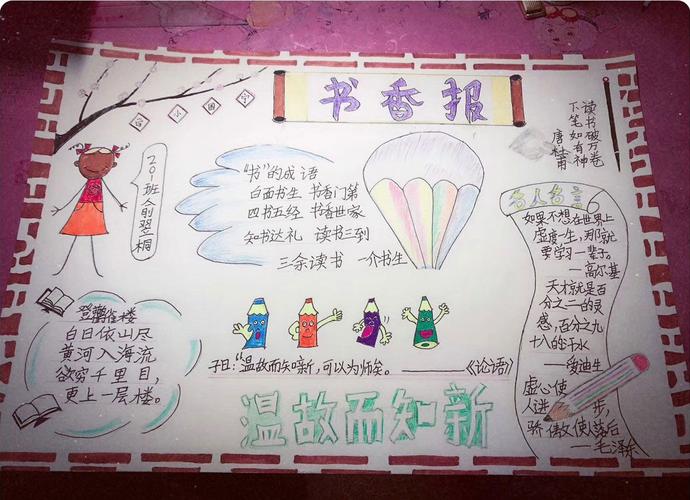 书香报
201班俞翌桐
“书”的成语
白面书生 书香门第
四书五经 书香世家
知书达礼 读书三到
三余读书 一介书生
读书破万卷
下笔如有神
唐 杜甫
名人名言
如果不想在世界上
虚度一生,那就
要学习一辈子。
—高尔基
天才就是百
分之二的灵
感,百分之九
十八的汗水
—爱迪生
虚心使
人进步,
骄傲使人落后
—毛泽东
登鹳雀楼
白日依山尽
黄河入海流
欲穷千里目,
更上一层楼。
子曰:“温故而知新,可以为师矣。 ———《论语》
温故而知新